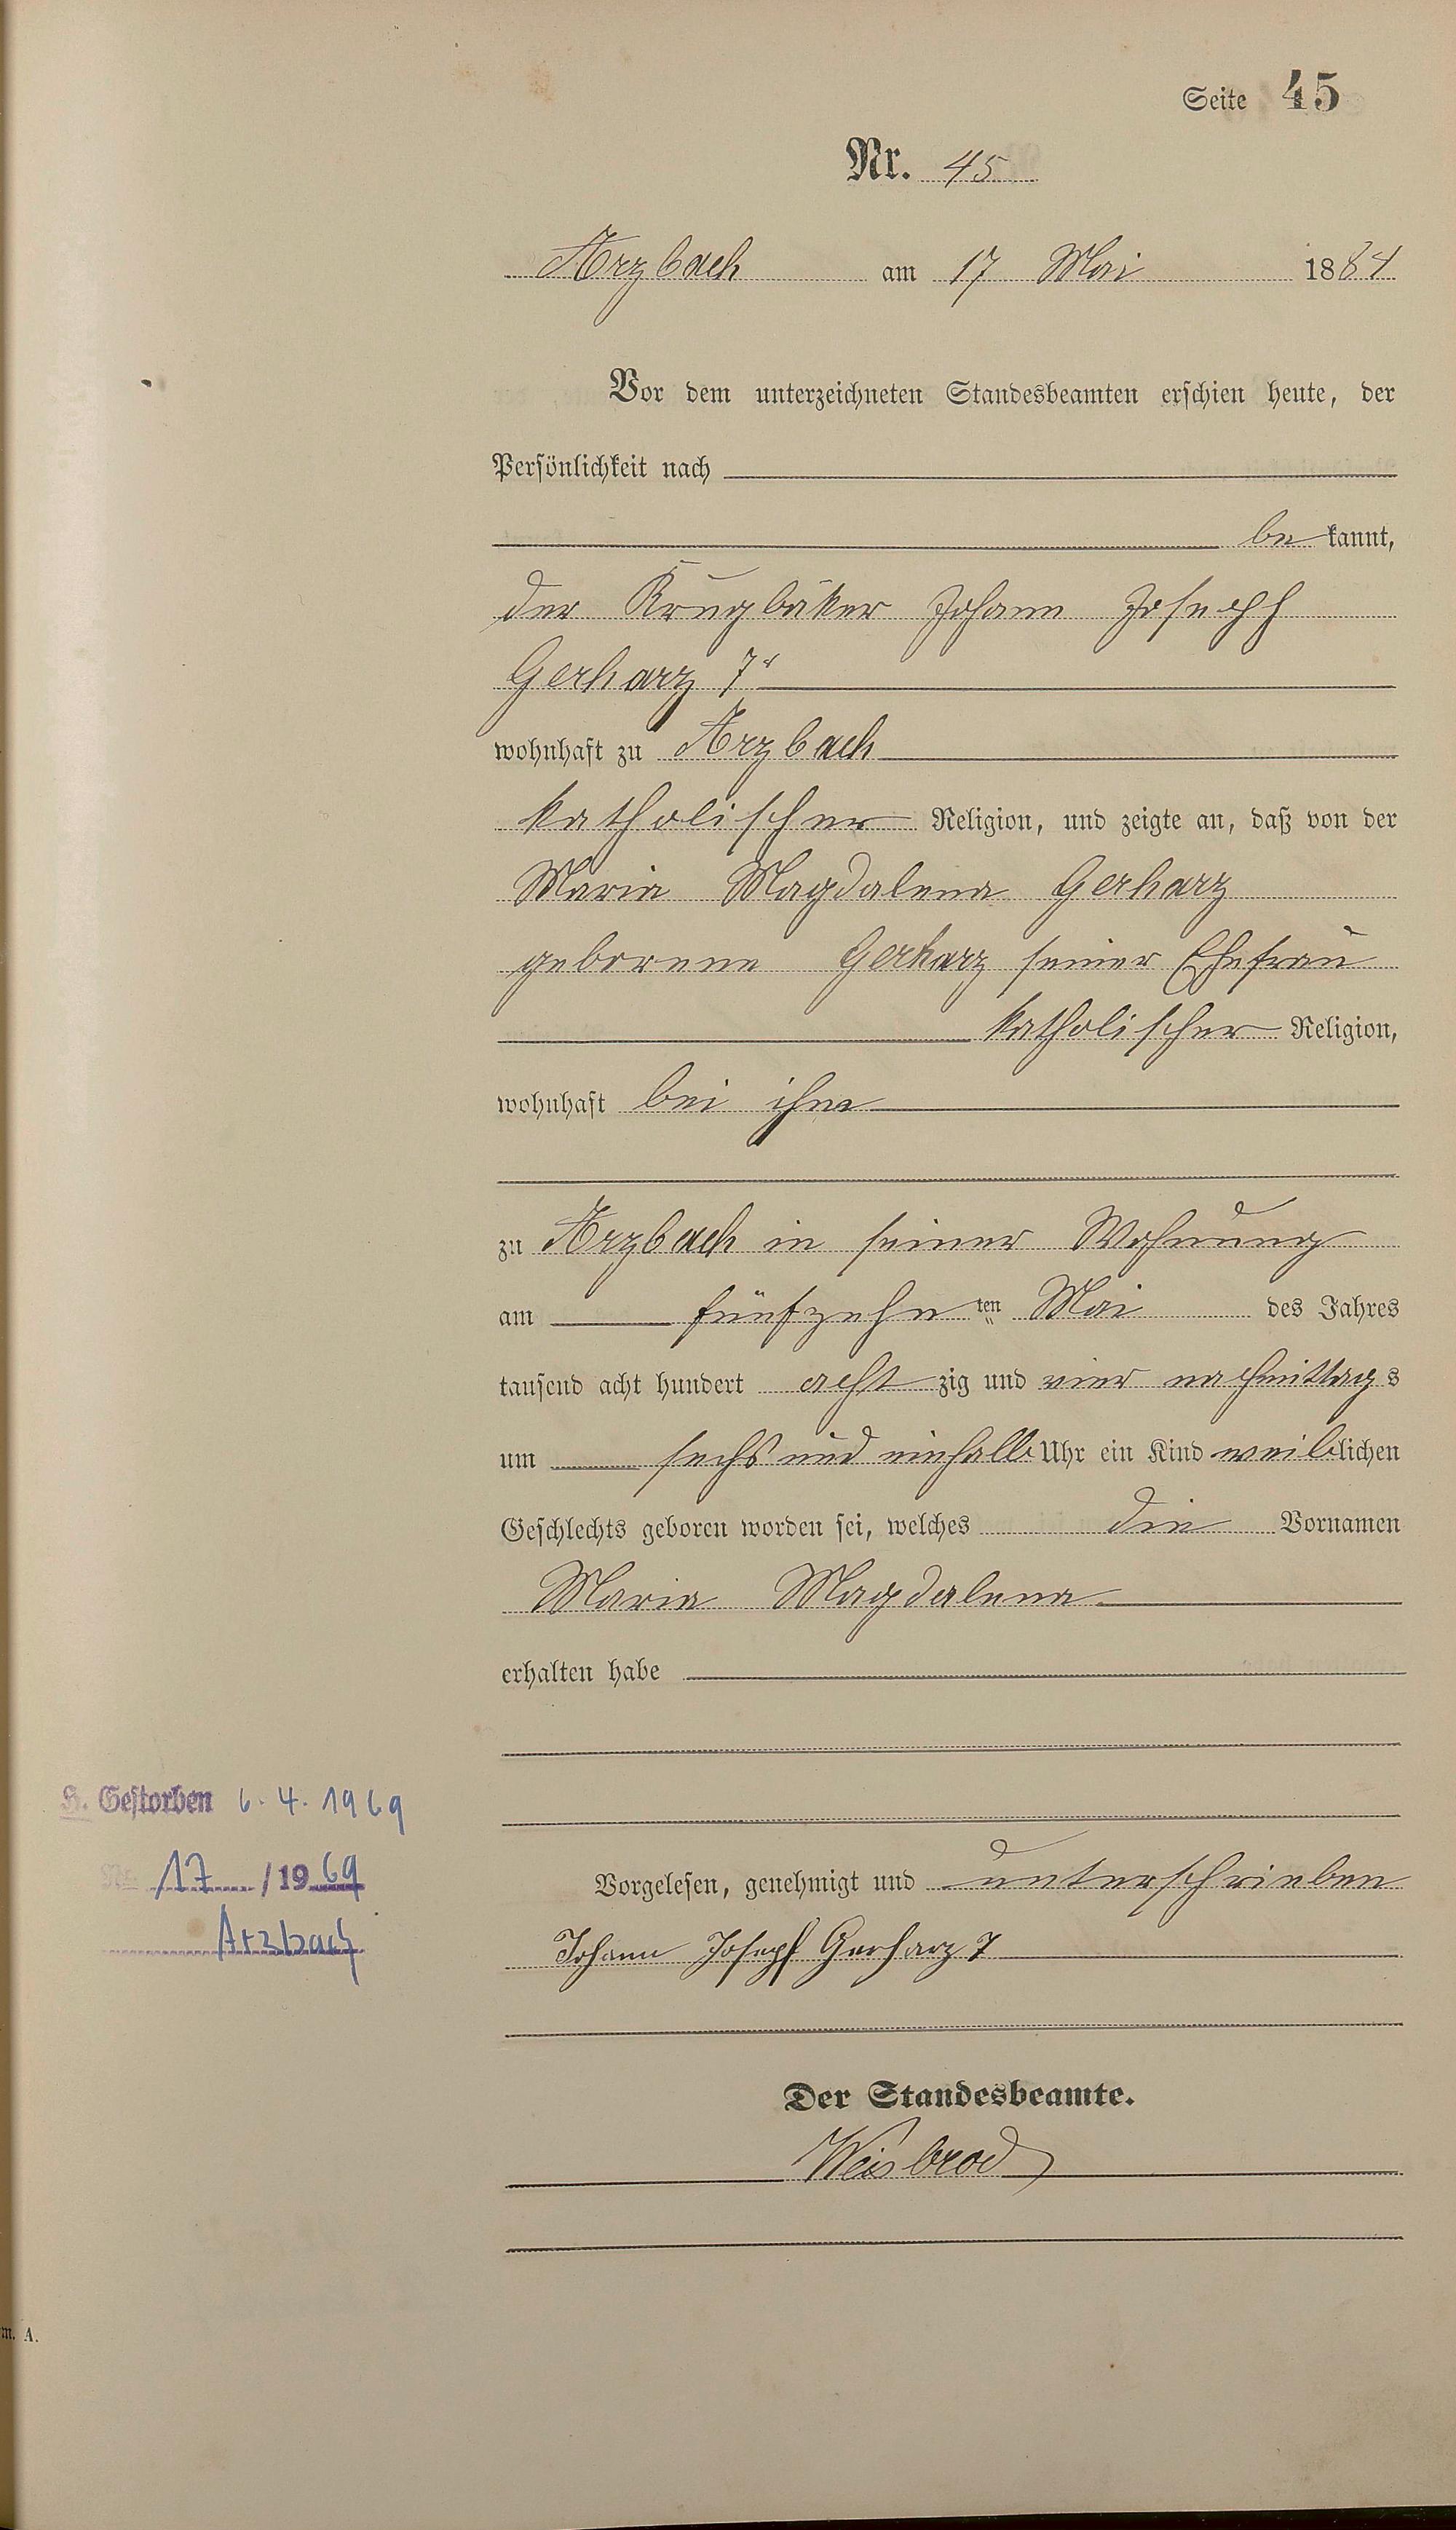 Seite 45
Nr. 45
Arzbach am 17 Mai 1884
Vor dem unterzeichneten Standesbeamten erschien heute, der
Persönlichkeit nach
be kannt,
der Krugbäker Johann Joseph
Gerharz 7r
wohnhaft zu Arzbach
katholischer Religion, und zeigte an, daß von der
Maria Magdalena Gerharz
geborene Gerharz seiner Ehefrau
katholischer Religion,
wohnhaft bei ihm
zu Arzbach in seiner Wohnung
am fünfzehn ten Mai des Jahres
tausend acht hundert acht zig und vier nachmittags
um sechs und einhalb Uhr ein Kind weiblichen
Geschlechts geboren worden sei, welches die Vornamen
Maria Magdalena
erhalten habe
H. Gestorben 6.4.1969
Nr. 17 /1969
Arzbach
Vorgelesen, genehmigt und unterschrieben
Johann Joseph Gerharz 7
Der Standesbeamte.
Weisbrod
m. A.